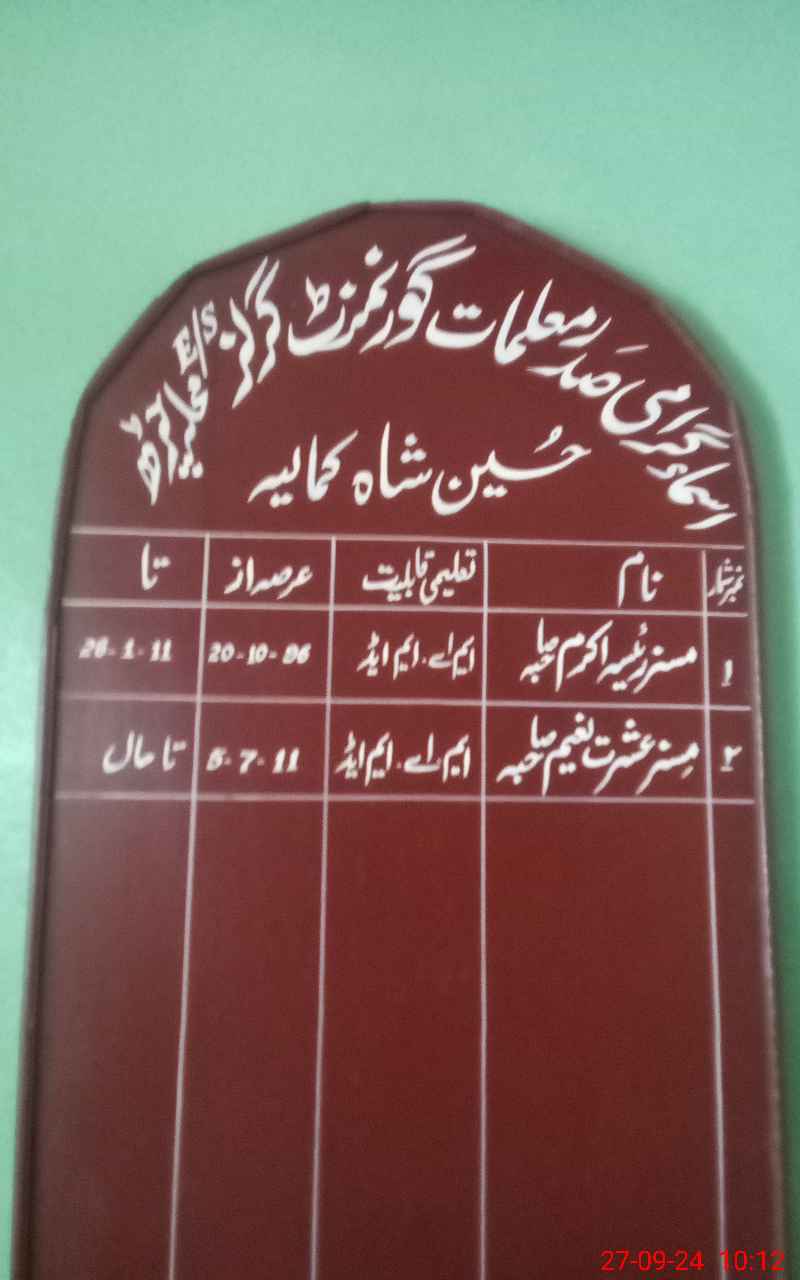 اسماء گرامی صدر معلمات گورنمنٹ گرلز E/S محلہ
حسین شاہ کمالیہ
نمبر شمار نام تعلیمی قابلیت عرصہ از تا
1 مسز رئیسہ اکرم صاحبہ ایم اے۔ ایم ایڈ 20-10-96 26-1-11
۲ مسز عشرت نعیم صاحبہ ایم اے۔ ایم ایڈ 5-7-11 تا حال
27-09-24 10:12